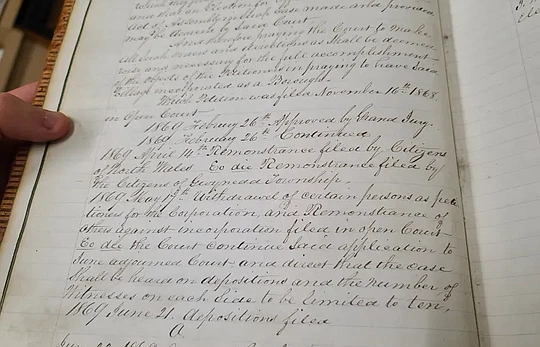 which
and that an Election for
Act of Assembly in such case made and provided
may be decreed by said Court.
And further praying the Court to make
such and decrees as shall be deemed
wise and necessary for the full accomplishment
of the objects of the Petitioners in praying to have said
Village incorporated as a Borough.
Which Petition was filed November 16th 1868.
in Open Court
1869 February 26th Approved by Grand Jury.
1869 February 26th Continued
1869 April 14th Remonstrance filed by Citizens
of North Wales Eo die Remonstrance filed by
the Citizens of Gwynedd Township.
1869 May Withdrawal of certain persons as peti-
tioners for the Corporation, and Remonstrance of
others against incorporation filed in open Court—
Eo die the Court continue said application to
June adjourned Court and direct that the case
shall be heard on depositions and the number of
Witnesses on each side to be limited to ten,
1869 June 21. depositions filed